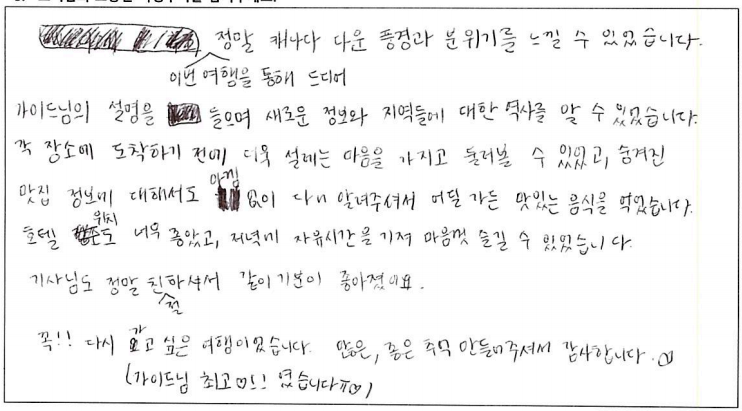 이번 여행을 통해 드디어 정말 캐나다 다운 풍경과 분위기를 느낄 수 있었습니다.
가이드님의 설명을 들으며 새로운 정보와 지역들에 대한 역사를 알 수 있었습니다.
각 장소에 도착하기 전에 더욱 설레는 마음을 가지고 둘러볼 수 있었고, 숨겨진
맛집 정보에 대해서도 아낌 없이 다 알려주셔서 어딜 가든 맛있는 음식을 먹었습니다.
호텔 위치도 너무 좋았고, 저녁에 자유시간을 가져 마음껏 즐길 수 있었습니다.
기사님도 정말 친절하셔서 같이 기분이 좋아졌어요.
꼭!! 다시 가고 싶은 여행이었습니다. 많은, 좋은 추억 만들어주셔서 감사합니다.♡
(가이드님 최고♡!! 였습니다ㅠ♡)